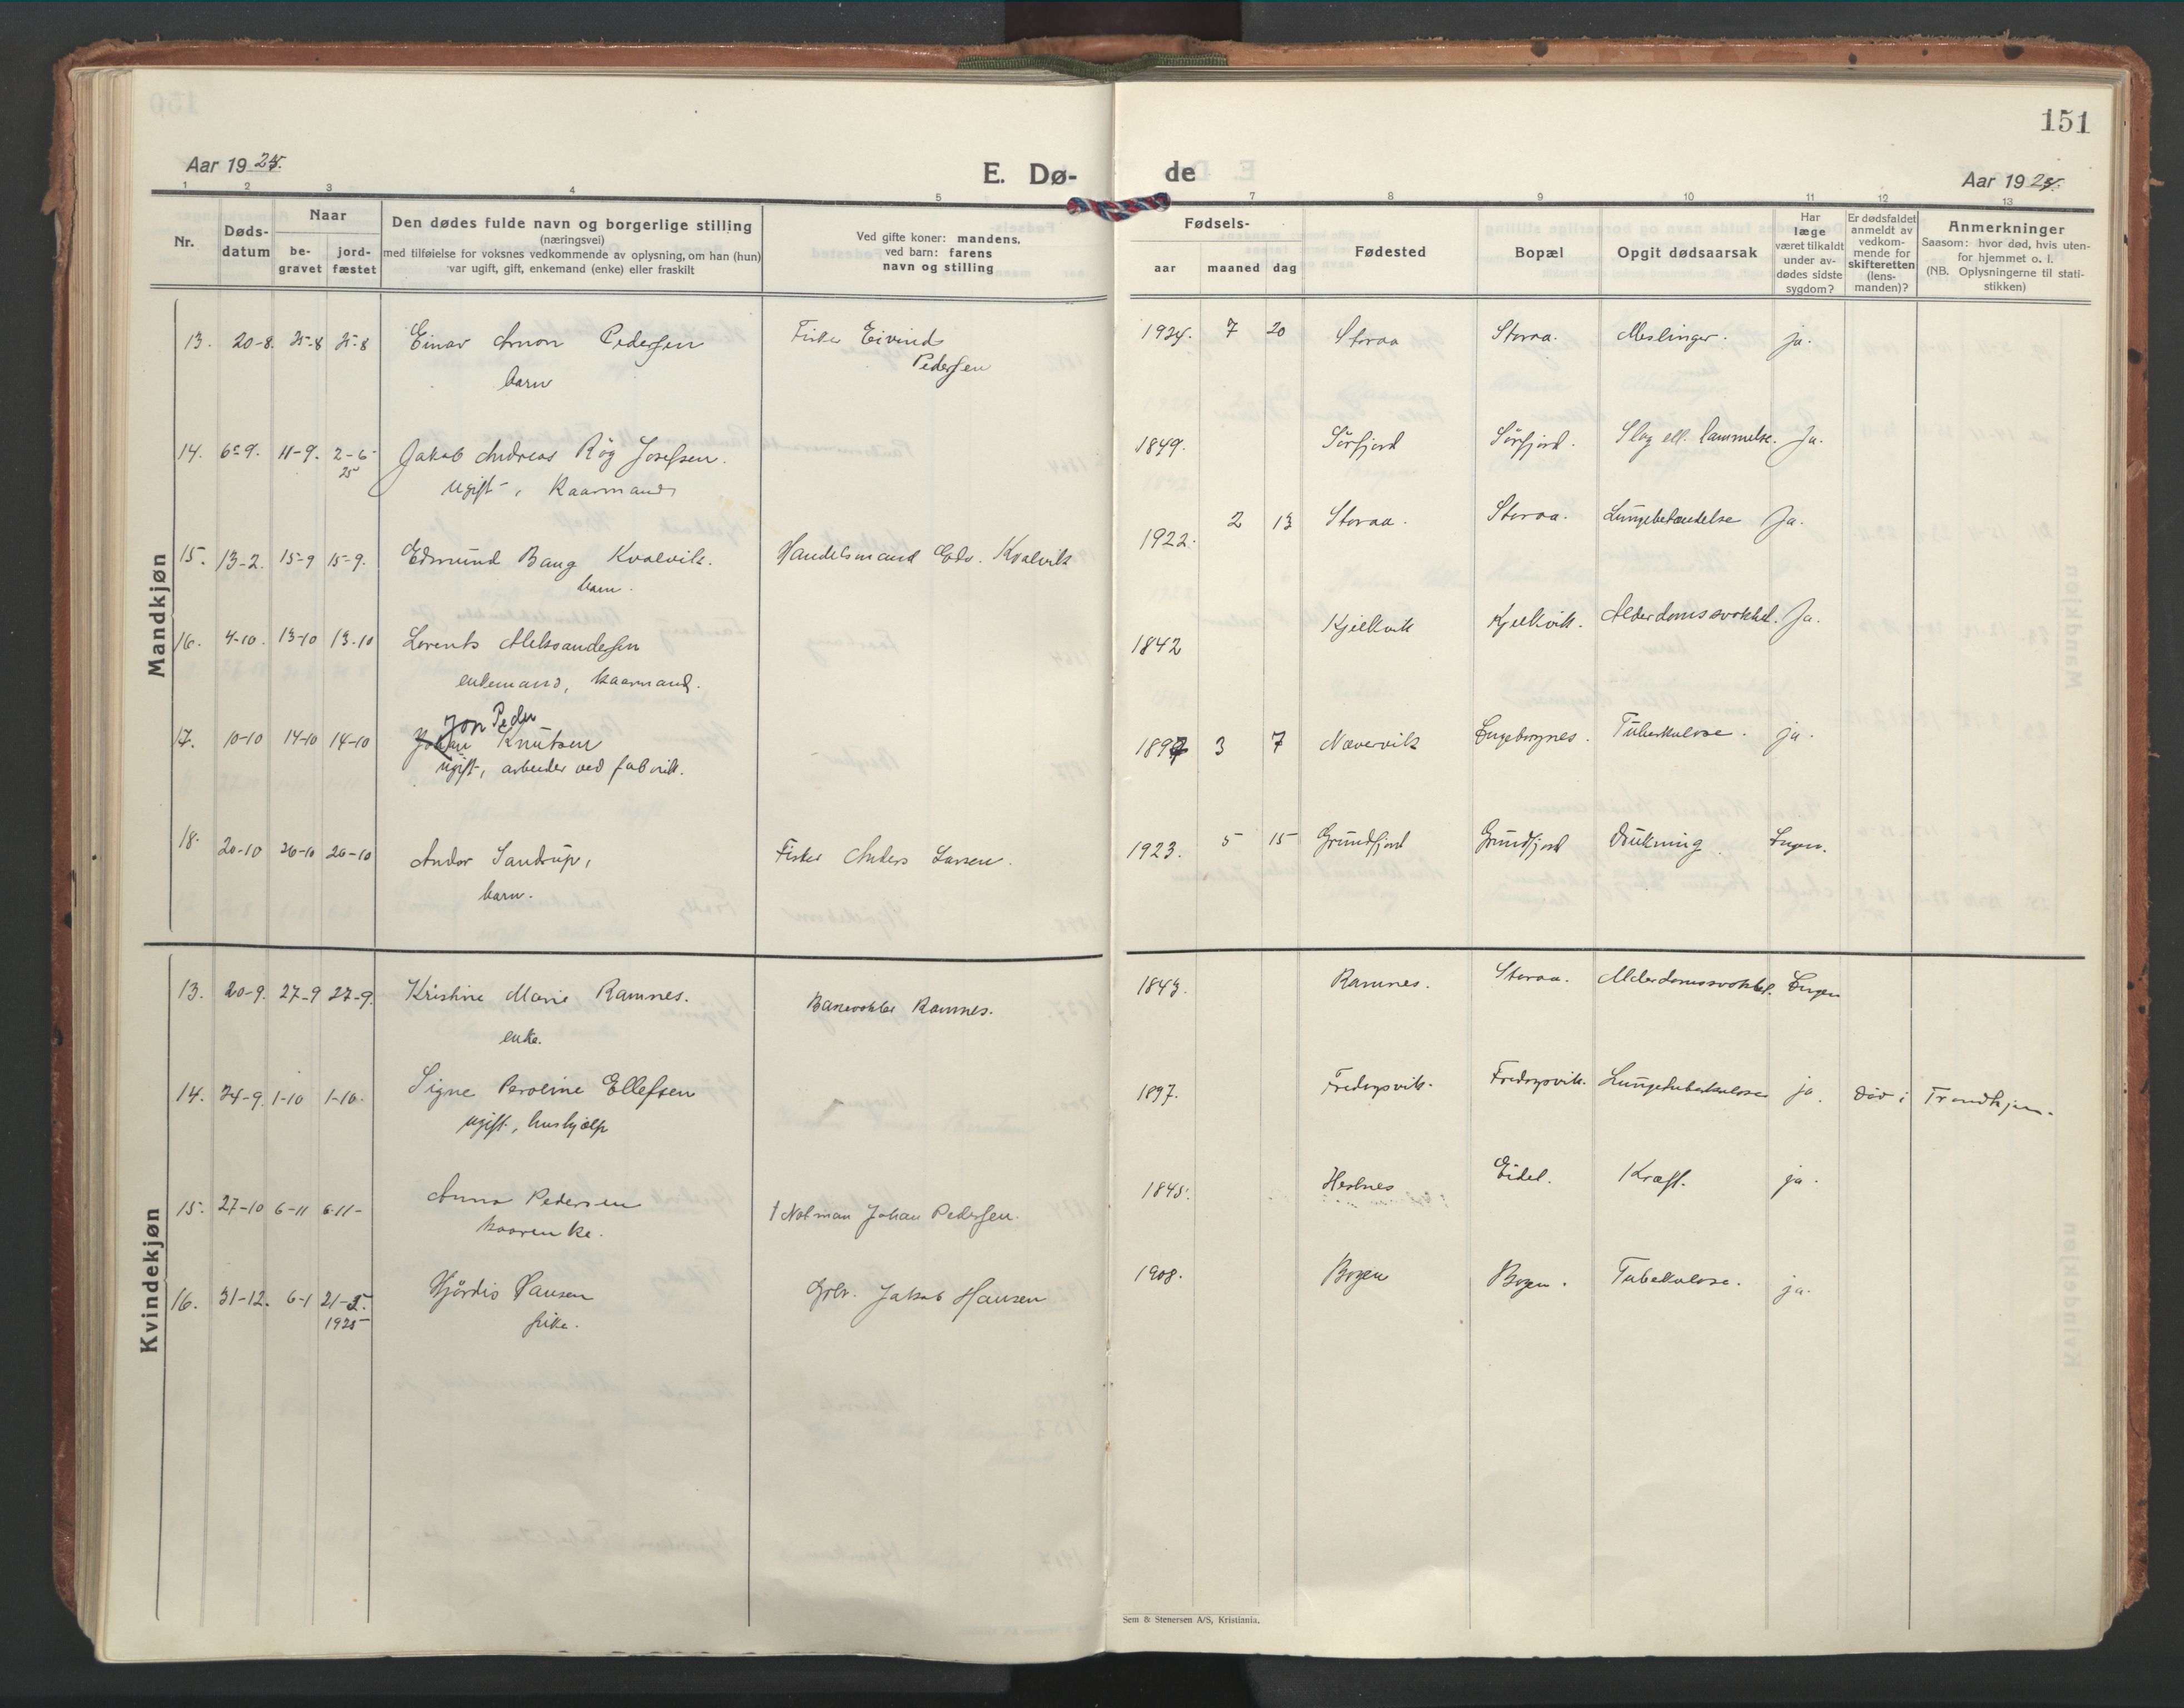 151
Aar 1924.
E. Dø-
de
Aar 1924.
1 2 3 4 5 7 8 9 10 11 12 13
Nr.
Døds-
datum
Naar
be-
gravet
jord-
fæstet
Den dødes fulde navn og borgerlige stilling
(næringsvei)
med tilføielse for voksnes vedkommende av oplysning, om han (hun)
var ugift, gift, enkemand (enke) eller fraskilt
Ved gifte koner: mandens,
ved barn: farens
navn og stilling
Fødsels-
aar maaned dag
Fødested
Bopæl
Opgit dødsaarsak
Har
læge
været tilkaldt
under av-
dødes sidste
sygdom?
Er dødsfaldet
anmeldt av
vedkom-
mende for
skifteretten
(lens-
manden)?
Anmerkninger
Saasom: hvor død, hvis uten-
for hjemmet o. l.
(NB. Oplysningerne til stati-
stikken)
Mandkjøn
13. 20-8. 25-8 25-8 Einar Arnon Pedersen Fisker Eivind 1924. 7 20 Storaa Storaa. Meslinger. ja.
barn Pedersen
14. 6-9. 11-9. 2-6- Jakob Andreas Røg Josefsen. 1849. Sørfjord Sørfjord. Slag ell. lammelse. Ja.
25 ugift, kaarmand
15. 13-2. 15-9 15-9. Edmund Bang Kvalvik. Handelsmand Edv. Kvalvik 1922. 2 13 Storaa. Storaa. Lungebetændelse Ja.
barn.
16. 4-10. 13-10 13-10 Lorents Aleksandersen 1842 Kjelkvik Kjelkvik. Alderdomssvakhet. Ja.
enkemand, kaarmand.
Jon Peder
17. 10-10 14-10 14-10 Johan Knutsen 1897 3 7 Nævervik Ingeborgnes. Tuberkulose. ja.
ugift, arbeider ved fabrik.
18. 20-10 26-10 26-10 Andor Sandrup, Fisker Anders Larsen. 1923. 5 15 Grundfjord Grundfjord Drukning Ingen.
barn.
Kvindekjøn
13. 20-9. 27-9 27-9. Kristine Marie Ramnes. Ramnes. 1843. Ramnes. Storaa. Alderdomssvakhet. Ingen
enke.
14. 24-9. 1-10 1-10. Signe Peroline Ellefsen 1897. Fredagsvik. Fredagsvik. Lungetuberkulose ja. Død i Trondhjem.
ugift, hushjælp
15. 27-10 6-11 6-11- Anna Pedersen † Notman Johan Pedersen. 1845. Hesnes Eidet. Kræft. ja.
kaarenke.
16. 31-12. 6-1 21-5. Hjørdis Hansen Grbr. Jakob Hansen 1908. Bogen Bogen. Tuberkulose. ja.
1925 pike.
Sem & Stenersen A/S, Kristiania.